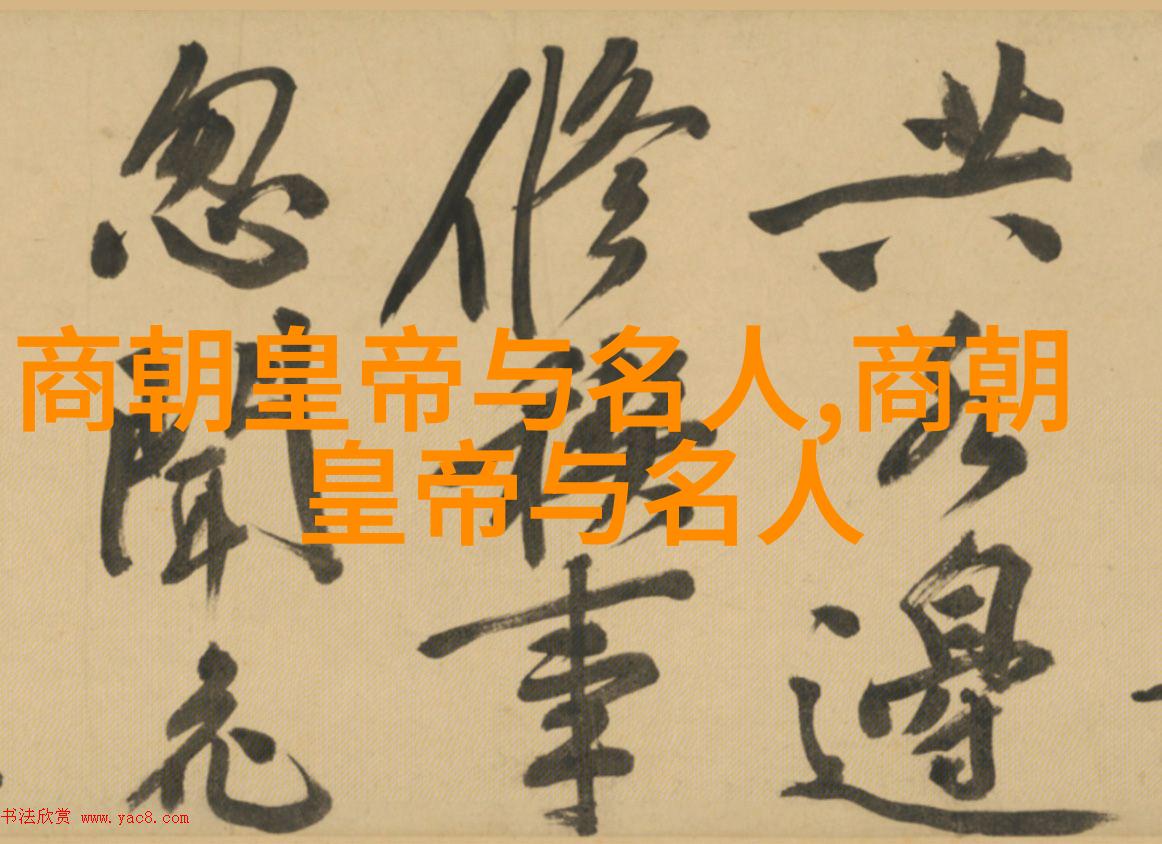 共水邊
修禊事
忽聞花
商朝皇帝与名人,商朝
皇帝与名人
书法欣赏 www.yac8.com